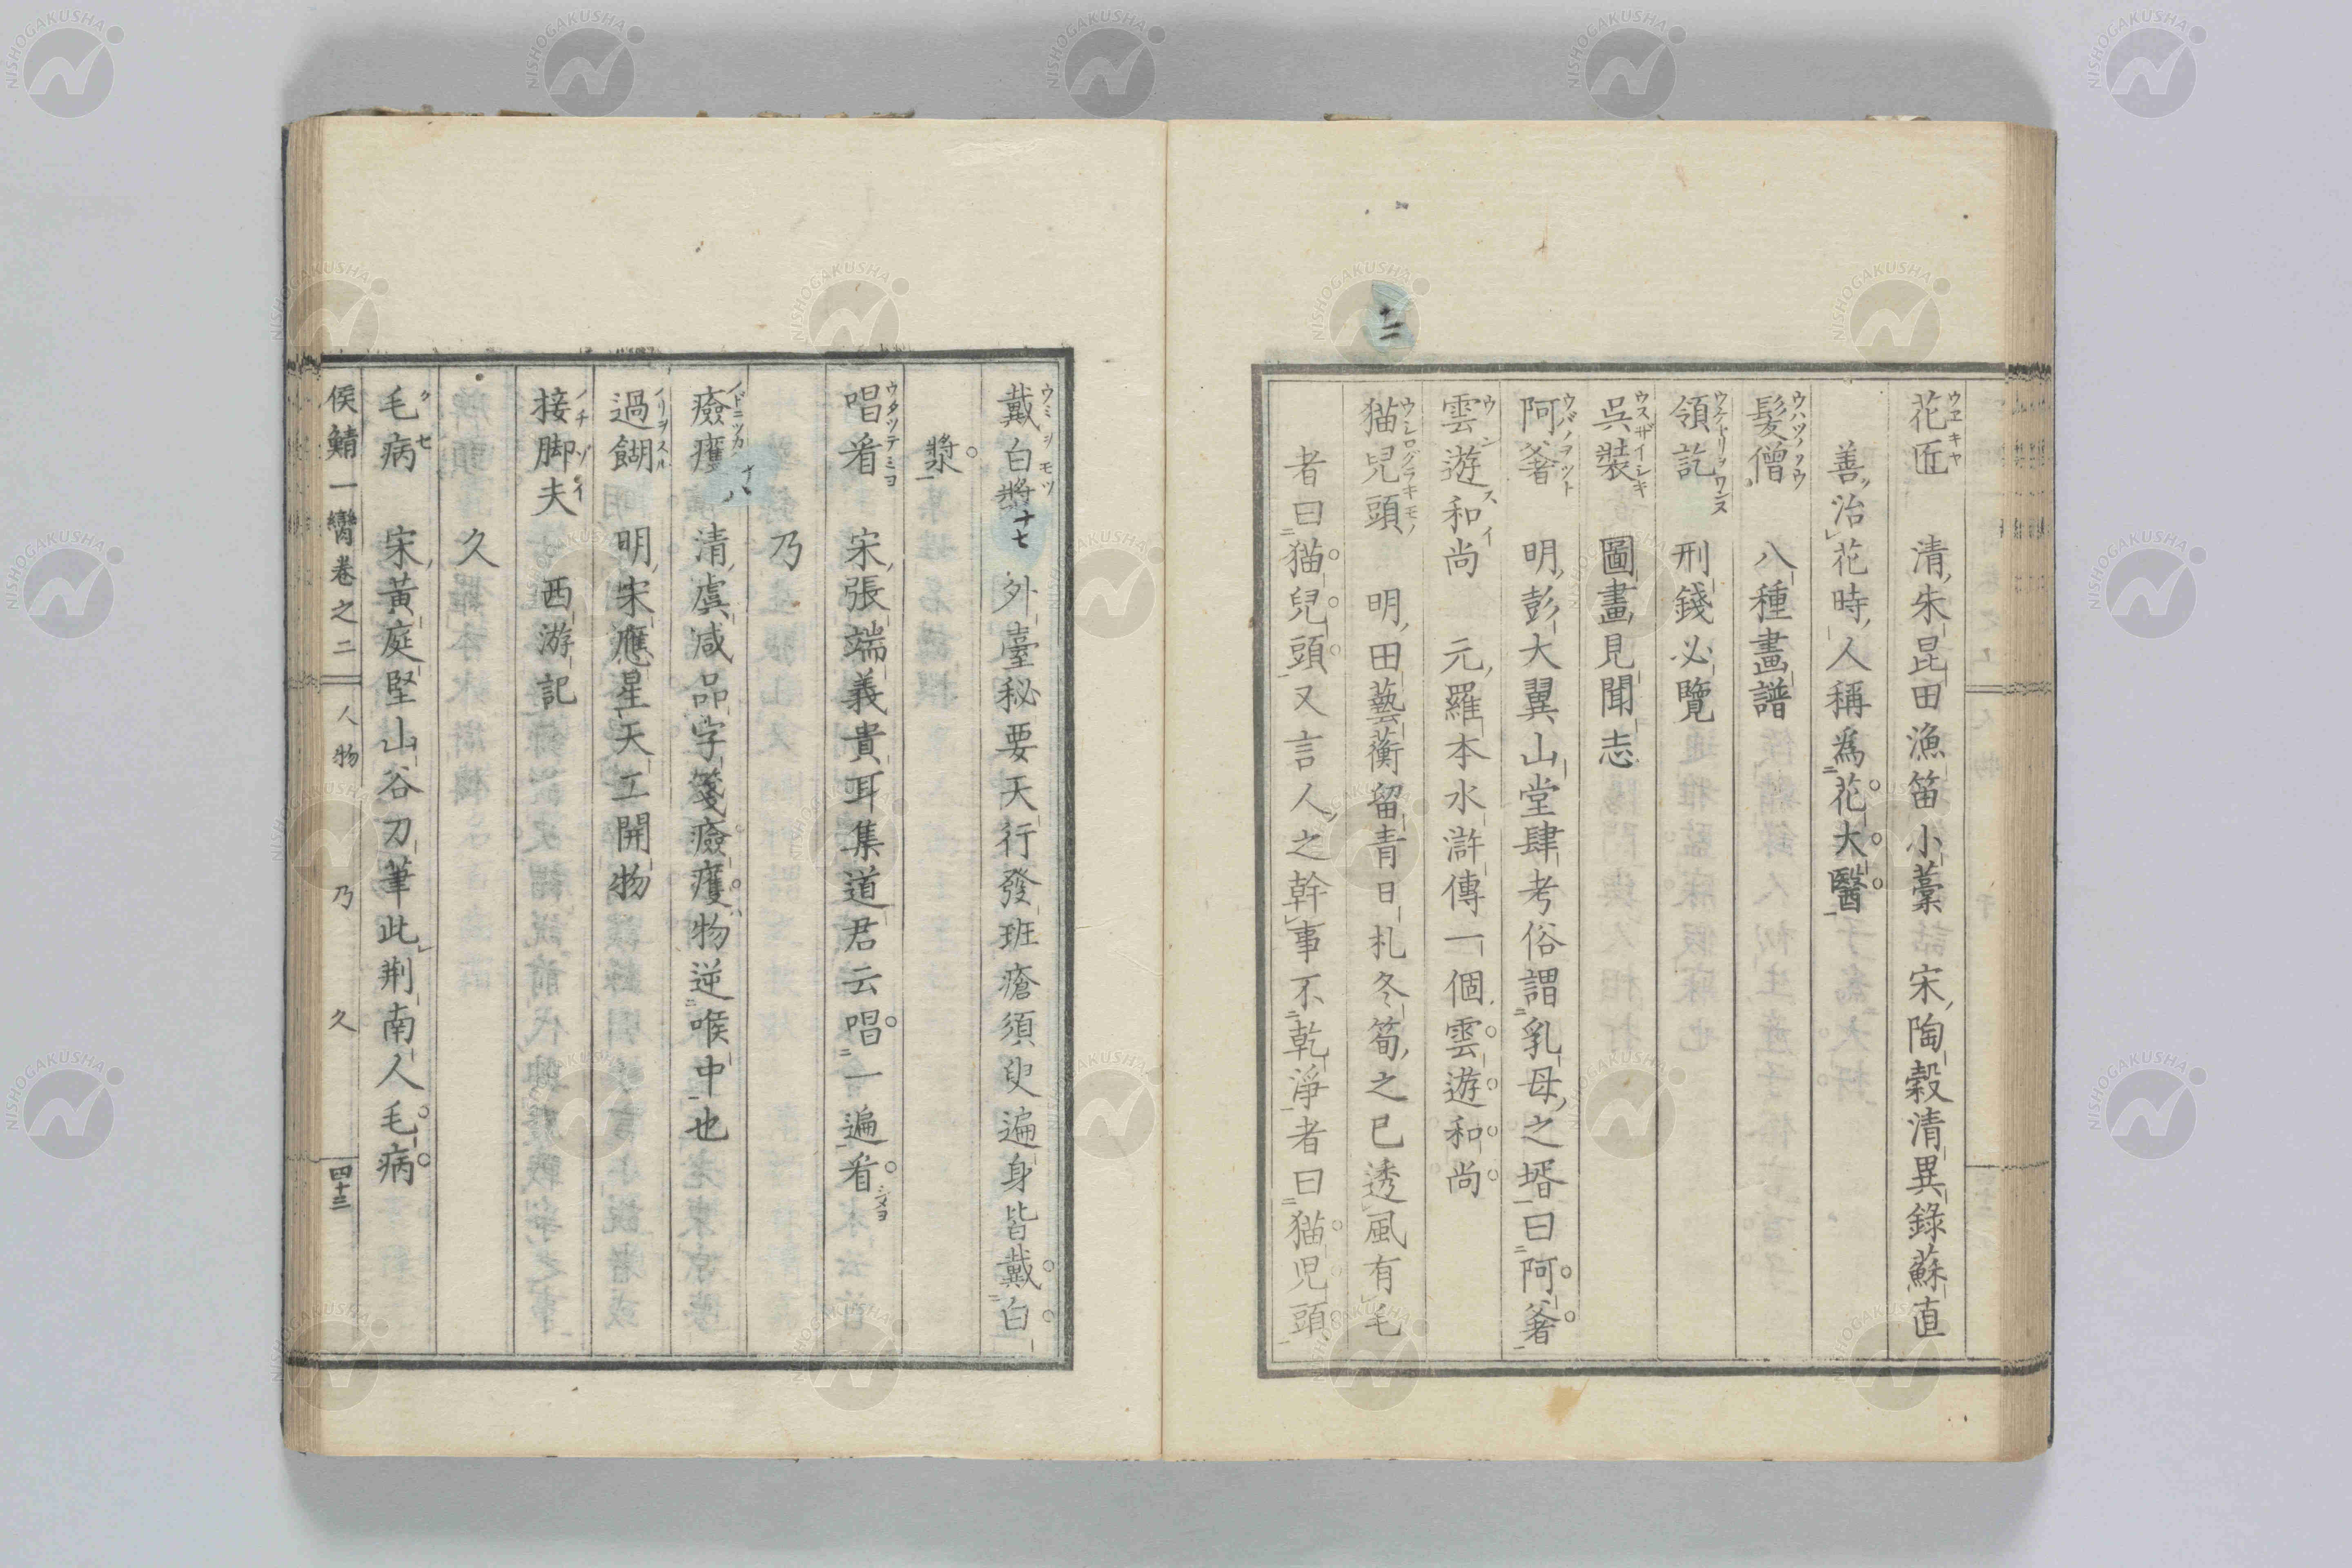 十二
花匠 清朱昆田漁笛小藁 宋陶穀清異錄蘇直
善治花時人稱爲花大醫
髮僧 八種畫譜
領訖 刑錢必覽
呉裝 圖畫見聞志
阿㸙 明彭大翼山堂肆考俗謂乳母之壻曰阿㸙
雲遊和尚 元羅本水滸傳一個雲遊和尚
猫兒頭 明田藝蘅留青日札冬筍之已透風有毛
者曰猫兒頭又言人之幹事不乾淨者曰猫児頭
戴白漿 外臺秘要天行發班瘡須臾遍身皆戴白
漿
十七
唱看 宋張端義貴耳集道君云唱一遍看
乃
癋癨 清虞咸品字箋癋癨物逆喉中也
十八
過餬 明宋應星天工開物
接脚夫 西游記
久
毛病 宋黃庭堅山谷刀筆此荆南人毛病
侯鯖一臠卷之二 人物 乃 久 四十三